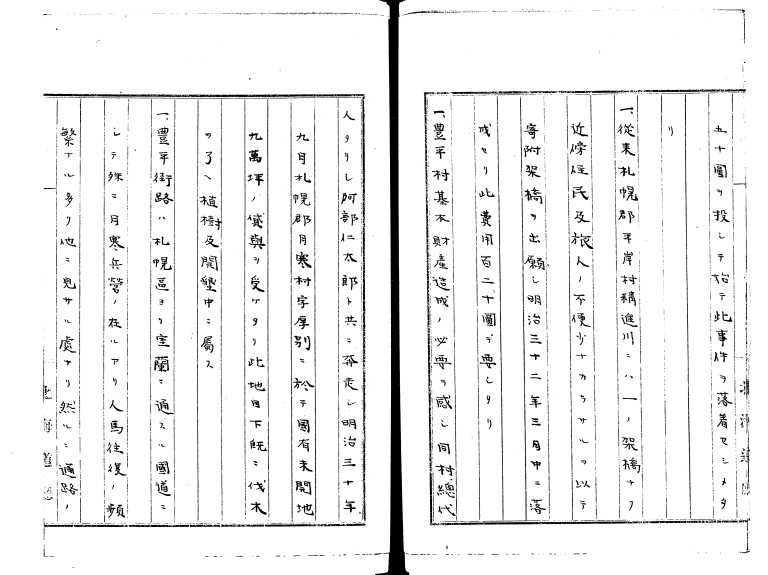 五十圓ヲ投シテ始テ此事件ヲ落着セシメタ
リ
一、從來札幌郡平岸村精進川ニハ一ノ架橋ナク
近傍住民及旅人ノ不便少ナカラサルヲ以テ
寄附架橋ヲ出願シ明治三十二年三月中ニ落
成セリ此費用百二十圓ヲ要シタリ
一、豊平村基本財産造成ノ必要ヲ感シ同村總代
人タリシ阿部仁太郎ト共ニ奔走シ明治三十年
九月札幌郡月寒村字厚別ニ於テ國有未開地
九萬坪ノ貸與ヲ受ケタリ此地目下既ニ伐木
ヲ了ヘ植樹及開墾中ニ屬ス
一、豊平街路ハ札幌區ヨリ室蘭ニ通スル國道ニ
シテ殊ニ月寒兵營ノ在ルアリ人馬往復ノ頻
繁ナル多ク他ニ見サル處ナリ然ルニ通路ノ
北海道廳